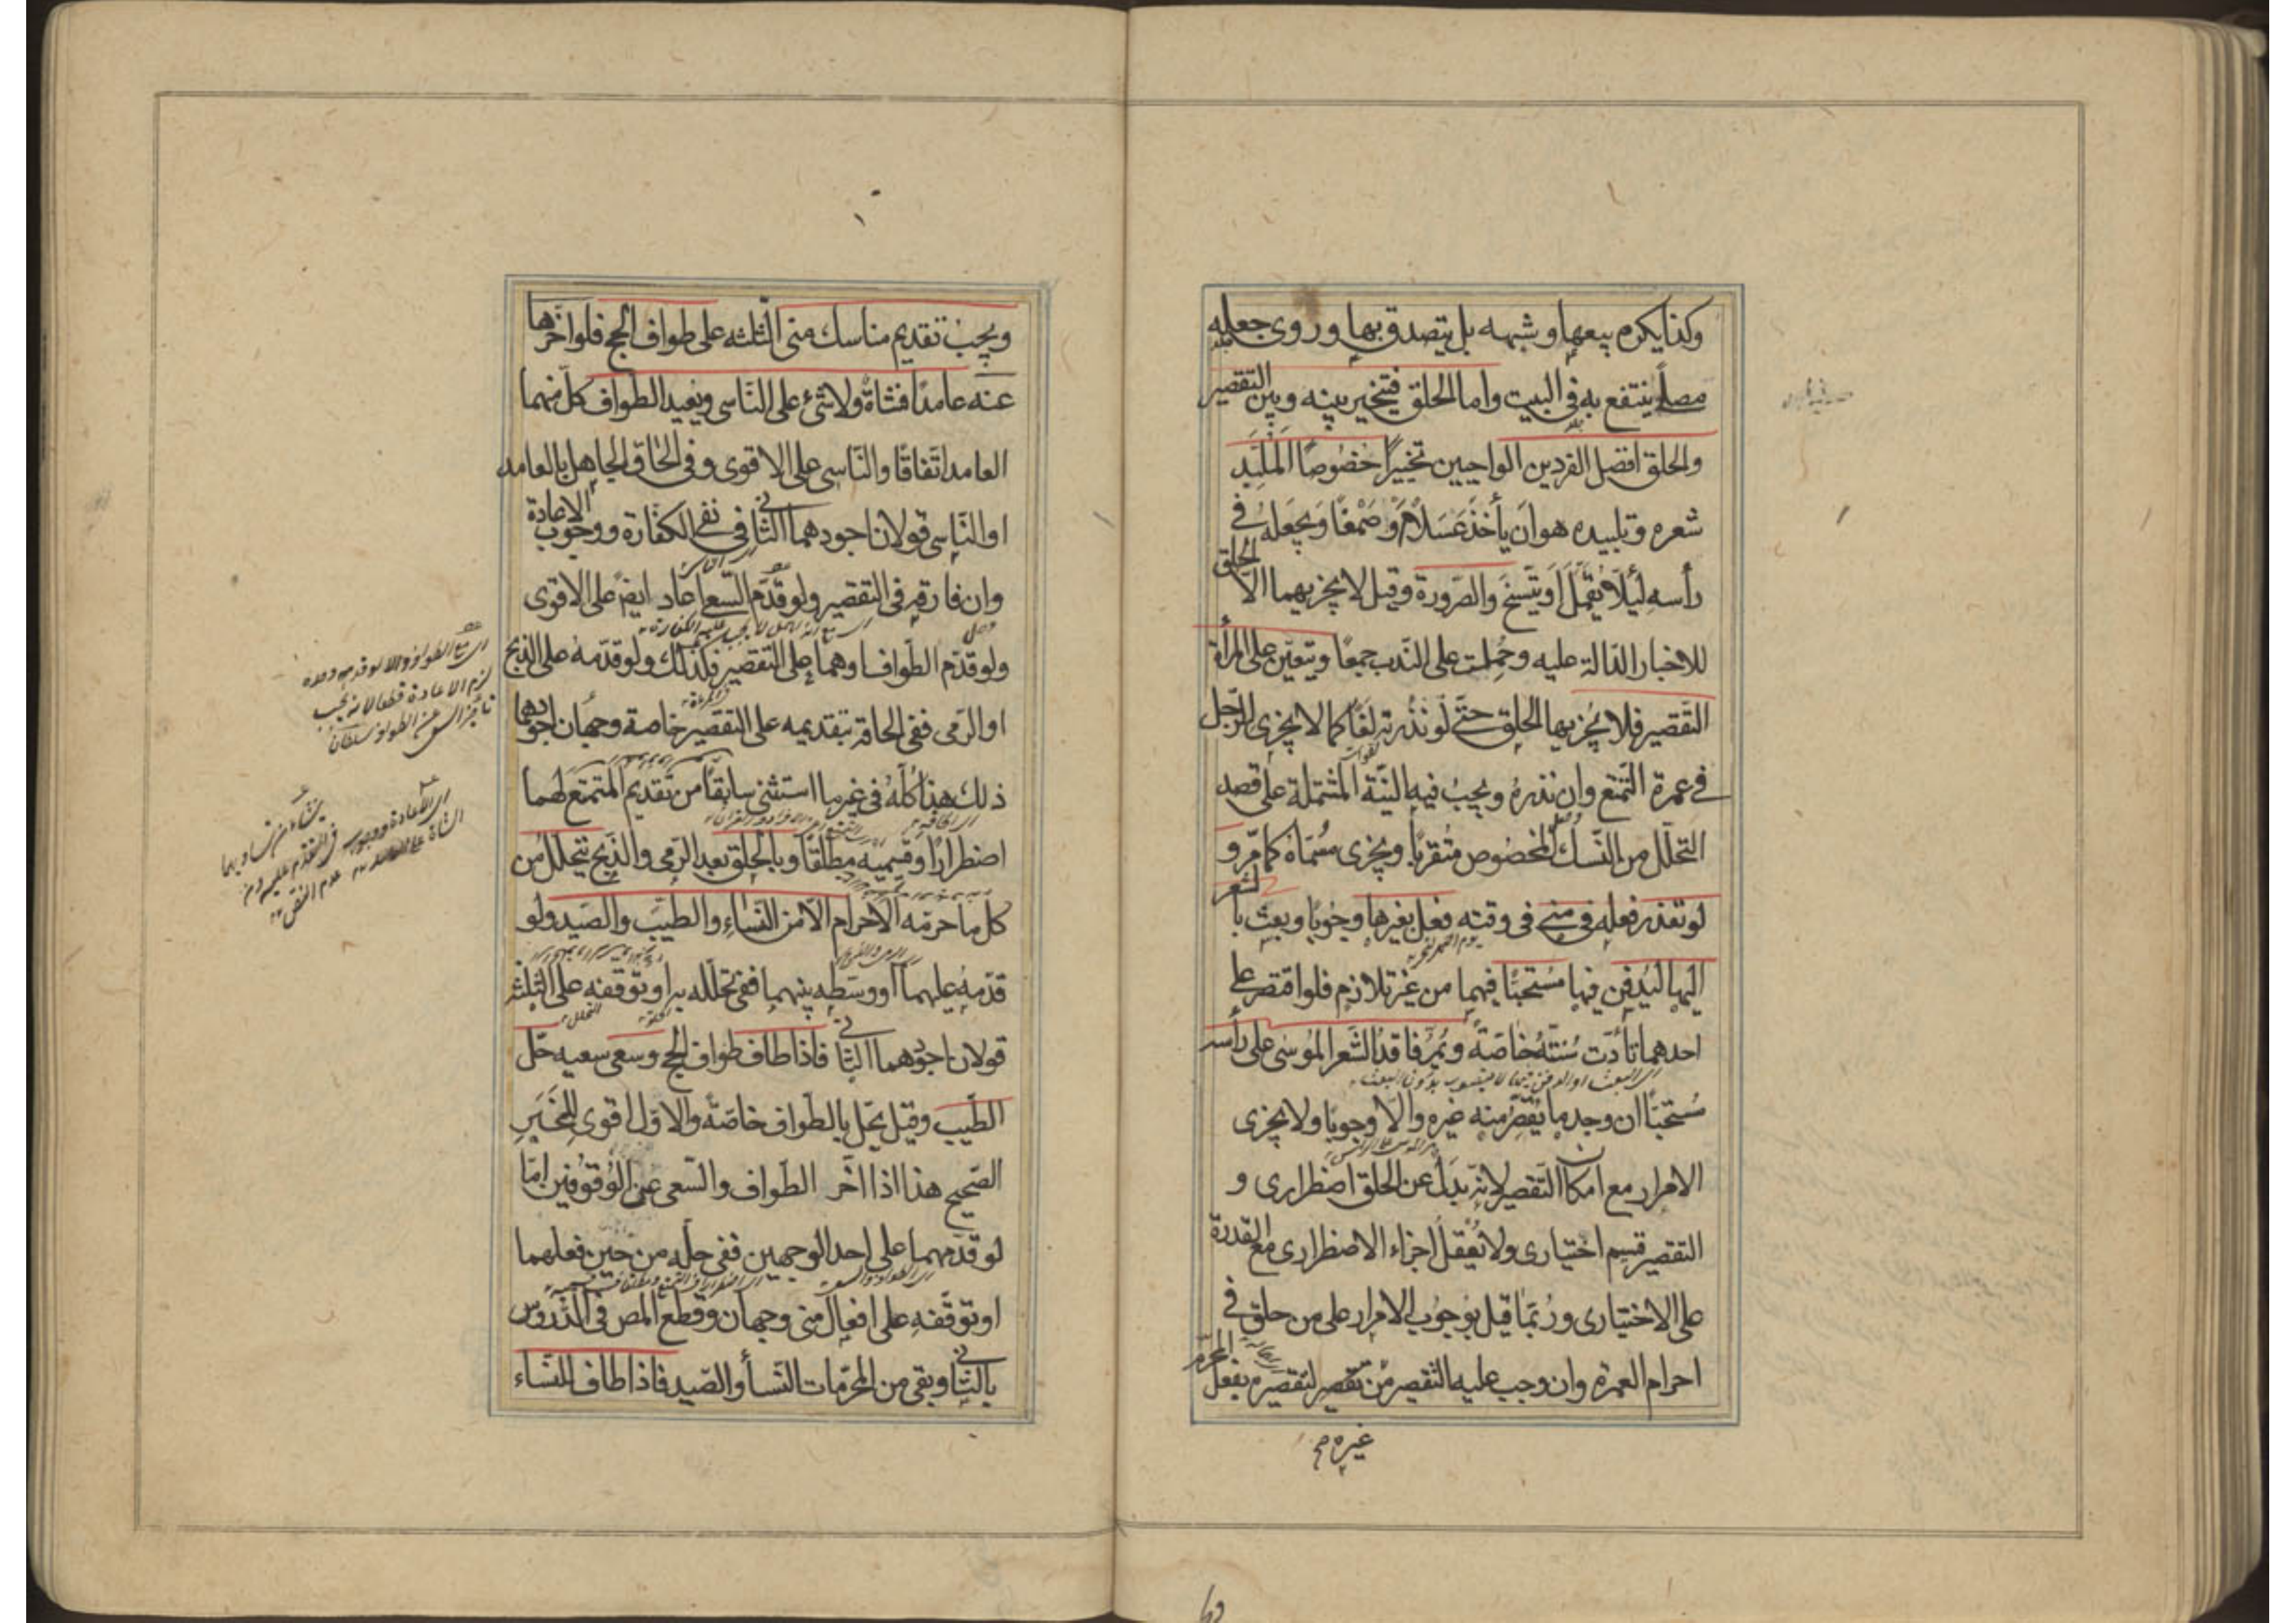 وكذا يكره بيعها وشبهه بل يتصدق بها وروى جعله
مصلى ينتفع به فى البيت واما الحلق فيتخير بينه وبين التقصير
والحلق افضل الفردين الواجبين تخييرًا خصُوصًا المُلَبّد
شعره وتلبيده هو ان يأخذ عَسَلًا وَصَمْغًا وَيجعَلهُ فى
رأسه لِئَلّا يَقمَلَ اَو يتّسخَ والصّرورة وقيل لا يجزيهما الّا الحلق
للاخبار الدّالة عليه وحُمِلت على النّدب جمعًا ويتعيّن على المرأة
التّقصير فلا يُجزيها الحلق حتّى لو نذرته لَغَا كما لا يجزى للرّجل
فى عمرة التّمتع وان نذره ويجبُ فيه النيّة المشتملة على قصد
التحلّل من النّسك المخصُوص متُقربًا ويجزى مسُمّاه كما مرّ و
لو تعذر فعله فى منى فى وقته فعل بغيرها وجُوبًا وبعث بالشعر
اليها ليُدفن فيها مُستحبًّا فيهما من غير تلازم فلو اقتصر على
احدهما تأدّت سُنّتهُ خاصّةً ويُمِرّ فاقدُ الشّعر المُوسى على رأسه
مُستحبًّا ان وجد ما يُقصّر منه غيره والّا وجوبًا ولا يجزى
الامرار مع امكان التّقصير لانّه بَدَل عن الحلق اضطرارى و
التقصير قسيم اختيارى ولا يُعقل اجزاء الاضطرارى مع القدرة
على الاختيارى ورُبّما قيل بوُجوُب الامرار على من حلق فى
احرام العمرة وان وجب عليه التقصير من تقصير لتقصيره بفعل المحرّم
غيره صح
ويجبُ تقديم مناسك منى الثّلثه على طواف الحج فلو اخّرها
عنه عامدًا فشاة ولا شئ على النّاسى ويُعيد الطواف كلّ منهما
العامد اتّفاقًا والنّاسى على الاقوى وفى الحاق الجاهل بالعامد
او النّاسى قولان اجودهما الثانى فى نفى الكفّارة ووجُوب الاعادة
وان فارقه فى التقصير ولو قدّم السّعى اعاد ايضً على الاقوى
ولو قدّم الطّواف او هما على التقصير فكذلك ولو قدّمه على الذبح
او الرّمى ففى الحاقه بتقديمه على التقصير خاصة وجهان اجودهما
ذلك هذا كُلّهُ فى غير ما استثنى سابقًا من تقديم المتمتع لهما
اضطرارًا وقسيميه مطلقًا وبالحلق بعد الرّمى والذبح يتحلّل من
كل ما حرمّه الاحرام الّا من النّساء والطيّب والصّيد ولو
قدّمهُ عليهما او وسّطه بينهما ففى تحلّله به او توقّفه على الثّلثة
قولان اجودهما الثانى فاذا طاف طواف الحج وسعى سعيه حَلّ
الطّيب وقيل يحَل بالطّواف خاصّة والاوّل اقوى للخَبَرِ
الصّحيح هذا اذا اخّر الطّواف والسّعى عن الوُقوُفين امّا
لو قدّمهما على احد الوجهين ففى حلّه من حين فعلهما
او توقّفه على افعال منى وجهان وقطع المص فى الدّروس
بالثّانى وبقى من المحرّمات النّسأ والصّيد فاذا طاف للنّساء